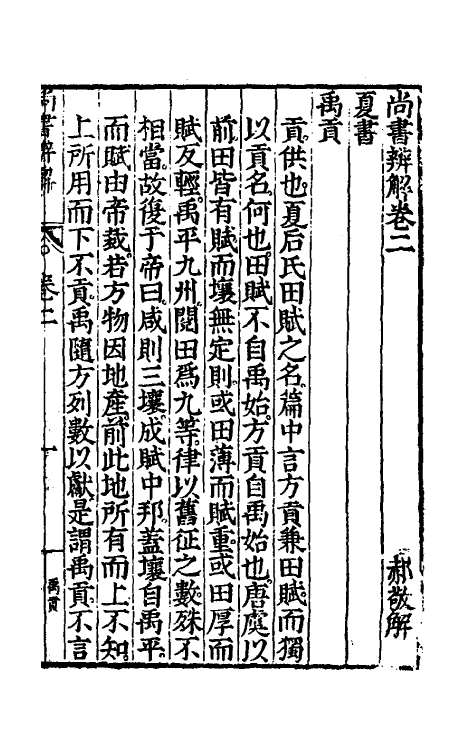 尚書辨解卷二
郝敬解
夏書
禹貢
貢供也夏后氏田賦之名篇中言方貢兼田賦而獨
以貢名何也田賦不自禹始方貢自禹始也唐虞以
前田皆有賦而壤無定則或田薄而賦重或田厚而
賦反輕禹平九州閱田爲九等律以舊征之數殊不
相當故復于帝曰咸則三壤成賦中邦蓋壤自禹平
而賦由帝裁若方物因地産前此地所有而上不知
上所用而下不貢禹隨方列數以獻是謂禹貢不言
尚書辨解
卷二
一
禹貢